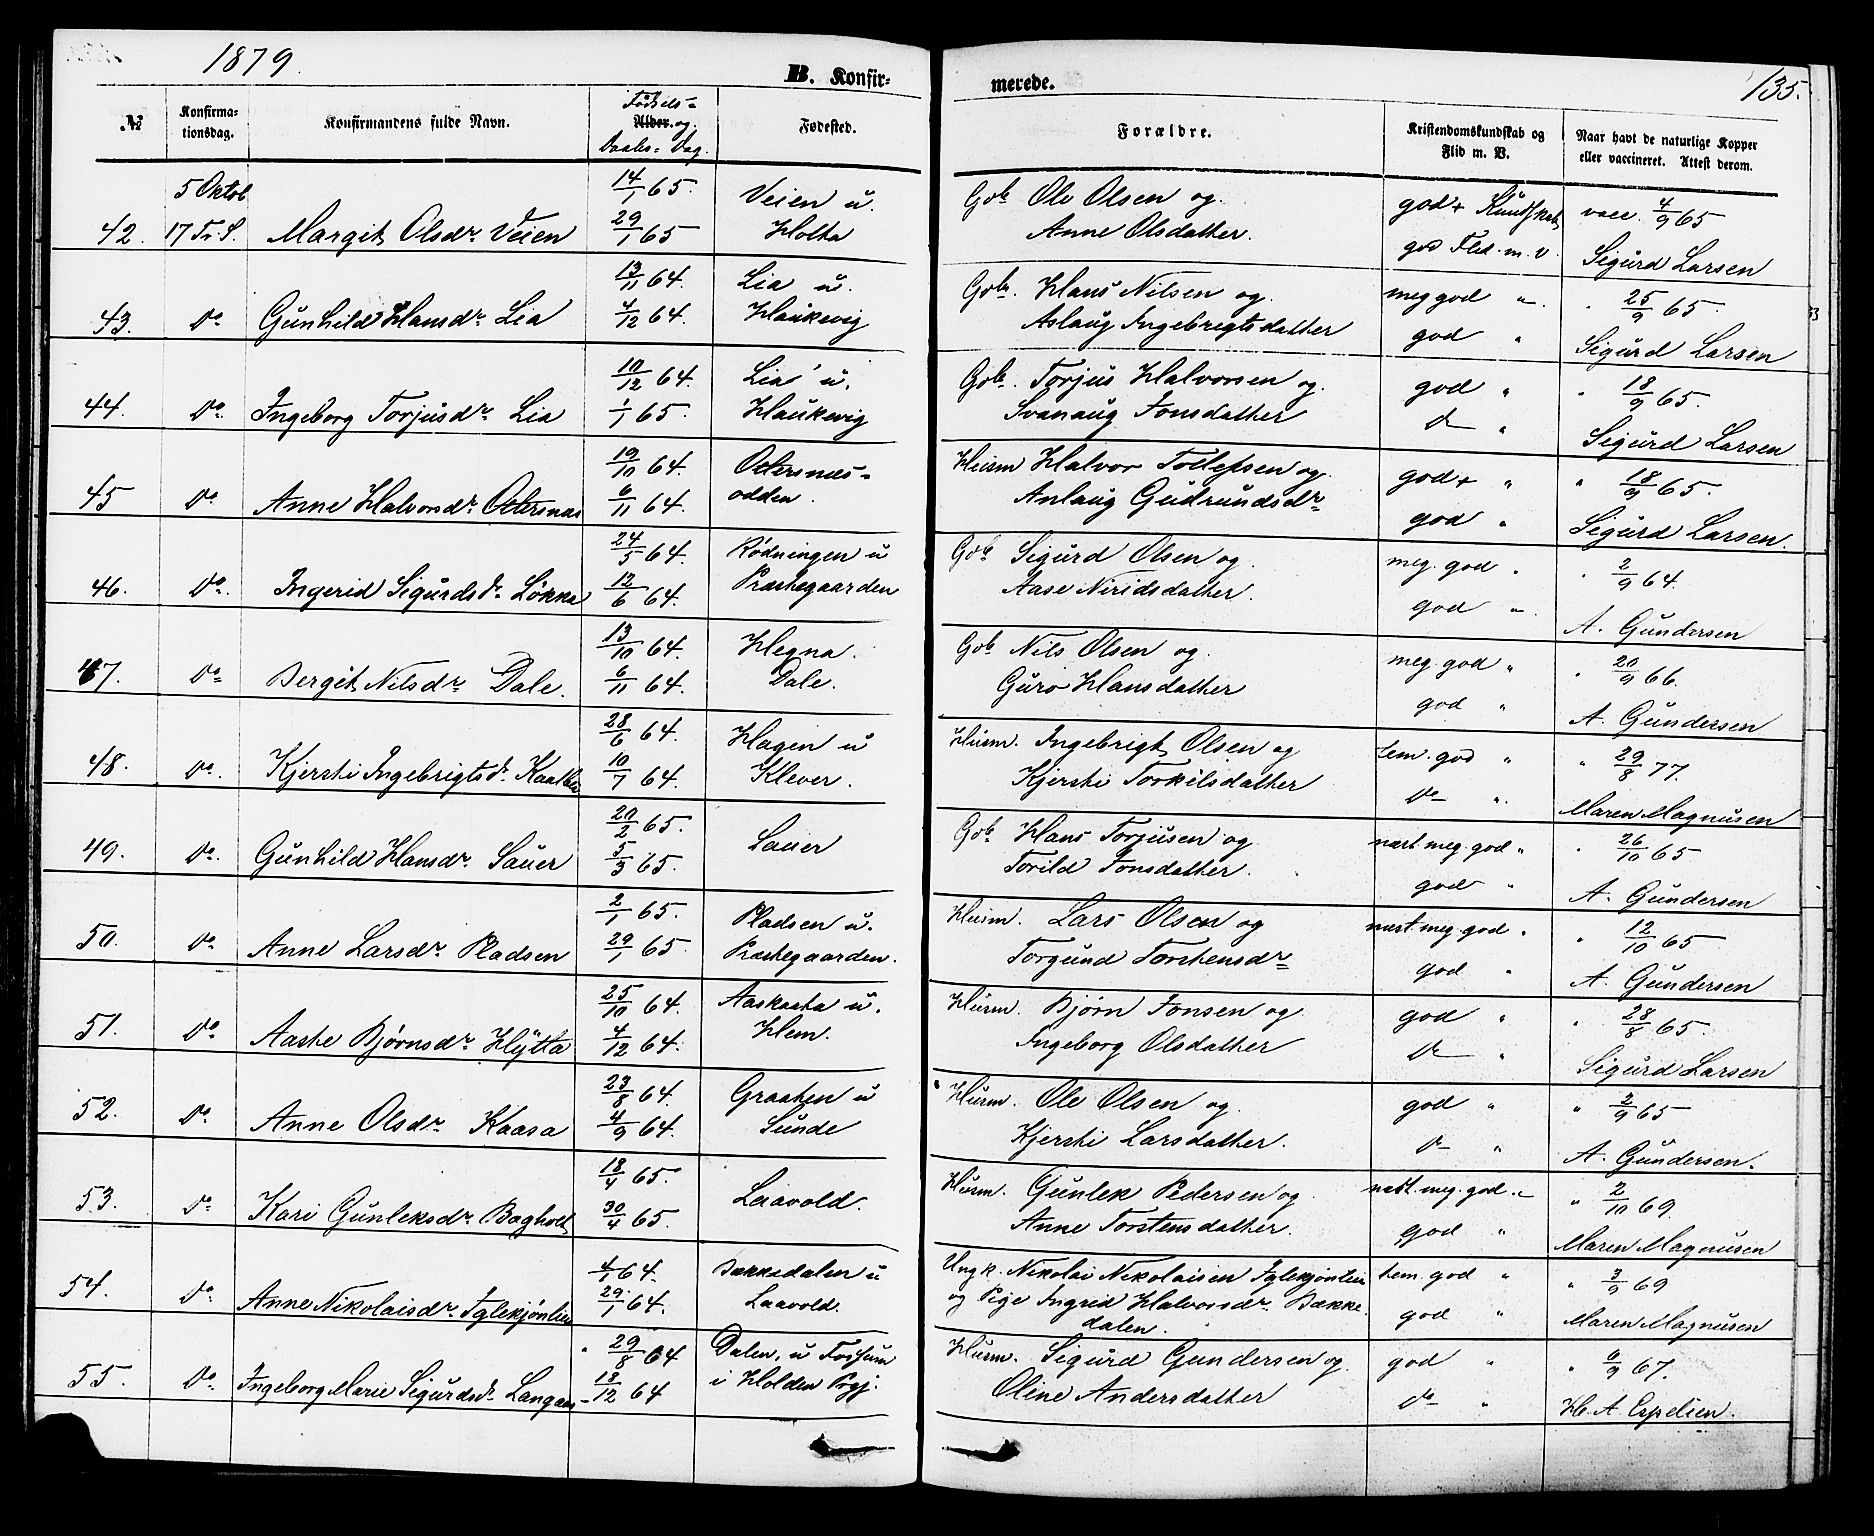 1879.
B. Konfir-
merede.
135.
№
Konfirma-
tionsdag.
Konfirmandens fulde Navn.
Fødsels-
Alder. og
Daabs-Dag.
Fødested.
Forældre.
Kristendomskundskab og
Flid m. V.
Naar havt de naturlige Kopper
eller vaccineret. Attest derom.
5 Oktob 14/1 65. Veien u. Gbr. Ole Olsen og god + Kundskab vacc. 4/9 65
42. 17 Tr. S. Margit Olsdr. Veien 29/1 65 Holta Anne Olsdatter. god Flid. m. V. Sigurd Larsen
13/11 64. Lia u. Gbr. Hans Nilsen og meg. god " " 25/9 65.
43. Do Gunhild Hansdr. Lia 4/12 64. Haukevig Aslaug Ingebrigtsdatter god " Sigurd Larsen
10/12 64. Lia u. Gbr. Torjus Halvorsen og god " " 18/9 65.
44. Do. Ingeborg Torjusdr. Lia 1/1 65. Haukevig Svanaug Jonsdatter Do " Sigurd Larsen
19/10 64. Ostersnes- Husm Halvor Tollefsen og god + " " 18/9 65.
45 Do. Anne Halvorsdr. Ostersnes 6/11 64. odden. Anlaug Gudmundsdr. god " Sigurd Larsen.
24/5 64. Rødningen u Gbr Sigurd Olsen og meg. god " " 2/9 64.
46. Do. Ingerid Sigurdsdr. Løkka 12/6 64. Præstegaarden Aase Niridsdatter. god " A. Gundersen
13/10 64. Hegna. Gbr Nils Olsen og meg. god " " 20/9 66.
47. Do Bergit Nilsdr. Dale. 6/11 64. Dale. Guro Hansdatter god " A. Gundersen
28/6 64. Hagen u Husm. Ingebrigt Olsen og tem. god " " 29/8 77.
48. Do. Kjersti Ingebrigtsdr. 10/7 64. Klever. Kjersti Torkilsdatter Do " Maren Magnusen
20/2 65. Sauer Gbr. Hans Torjusen og næst. meg. god " " 26/10 65
49. Do. Gunhild Hansdr. Sauer 5/3 65. Torild Jonsdatter. god " A. Gundersen
2/1 65. Pladsen u. Husm. Lars Olsen og næst. meg. god " " 12/10 65
50. Do Anne Larsdr. Pladsen 29/1 65. Præstegaarden. Torgund Torstensdr. god " A. Gundersen
25/10 64. Aaskaata u. Husm. Bjørn Jonsen og god " " 28/8 65.
51. Do Aaste Bjørnsdr. Hytta 4/12 64. Hem. Ingeborg Olsdatter Do " Sigurd Larsen
23/8 64. Graaten u Husm. Ole Olsen og god " " 2/9 65
52. Do. Anne Olsdr. Kaasa 4/9 64. Sunde Kjersti Larsdatter. Do " A. Gundersen.
18/4 65. Laavold. Husm. Gunlek Pedersen og næst. meg. god " " 2/10 69.
53. Do Kari Gunleksdr. Bagholt 30/4 65. Anne Torstensdatter. god " Maren Magnusen
4/1 64. Bækkedalen u Ungk. Nikolai Nikolaisen Iglekjønlien tem. god " " 3/9 69
54. Do. Anne Nikolaisdr. Iglekjønlien 29/1 64. Laavold. og Pige Ingrid Halvorsdr. Bække- god " Maren Magnusen
dalen.
" 29/8 64 Dalen, u Fossum Husm. Sigurd Gundersen og god " " 6/9 67.
55. Do. Ingeborg Marie Sigurdsdr. Langaas 18/12 64 i Holden Prgj. Oline Andersdatter Do " H. A. Espelien.
33